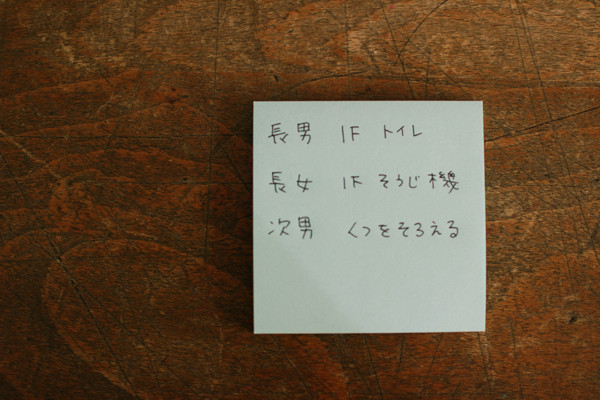 長男 1F トイレ
長女 1F そうじ機
次男 くつをそろえる